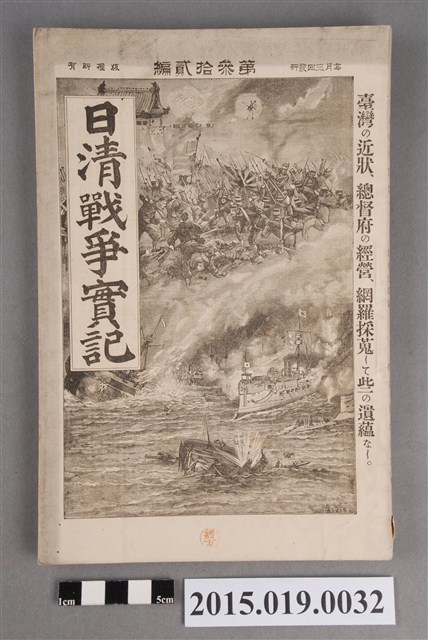 毎月三回發行
第參拾貳編
版權所有
臺灣の近狀、總督府の經營、網羅採蒐して些の遺蘊なし。
日清戰爭實記
1cm
5cm
2015.019.0032